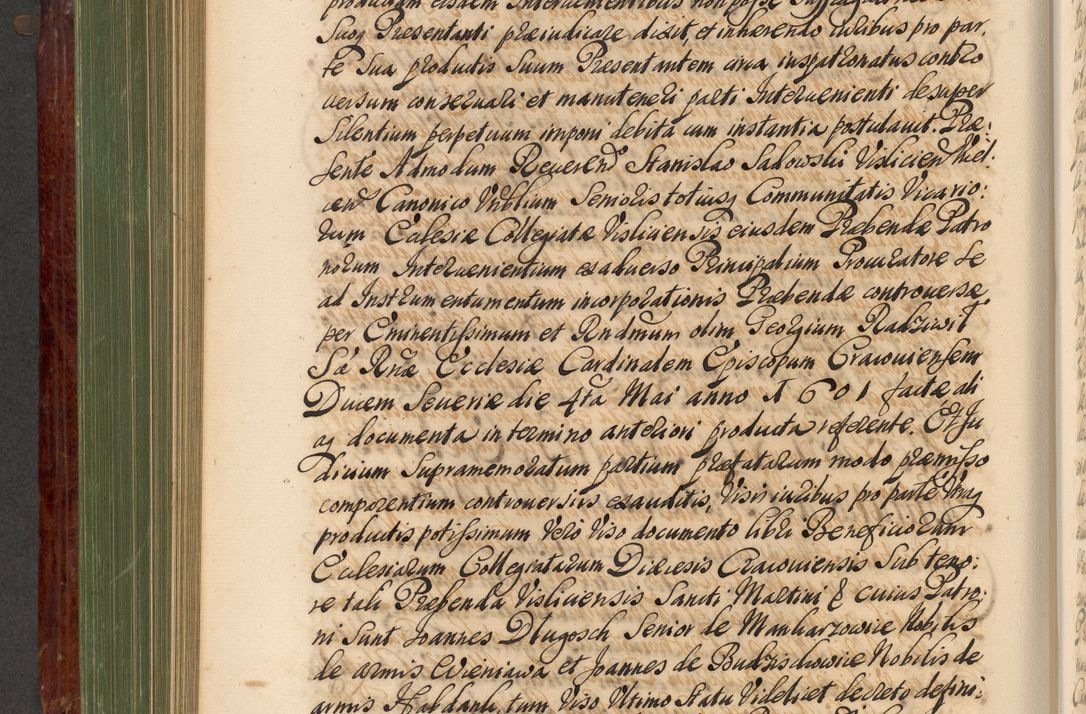 productam eisdem Intervenientibus non posse suffragari
Suoq Presentanti præiudicare dixit, et inhærendo iuribus pro par,
te sua productis suum Presentantem circa iuspatronatus contro
versum conservari et manuteneri parti Intervenienti desuper
Silentium perpetuum imponi debita cum instantia postulavit. Præ:
sente Admodum Reverendo Stanislao Salowski Visliciens Viel:
Canonico Vnblium Senioris totiusq Communitatis Vicario:
rum Ecclesiæ Collegiatæ Visliciensis eiusdem Præbendæ Patro
norum Intervenientium ex adverso Principalium Procuratore se
ad Instrumentumentum incorporationis Præbendæ controversæ
per Eminentissimum et Rndmum olim Georgium Radziwil
Sæ Rnæ Ecclesiæ Cardinalem Episcopum Cracoviensem
Ducem Severiæ die 4ta Mai anno 1601 factæ ali
aq documenta in termino anteriori producta referente. Et Ju
dicium Supramemoratum partium præfatarum modo præmisso
comparentium controversiis exauditis, Visis iuribus pro parte Utraq
productis potissimum Vero Viso documento libri Beneficiorum
Ecclesiarum Collegiatarum Diæcesis Cracoviensis Sub teno:
re tali Præbenda Visliciensis Sancti Martini & cuius Patro:
ni Sunt Joannes Dlugosch Senior de Manharzowice Nobilis
de armis Wieniawa et Joannes de Budzischowice Nobilis de
armis Habdank, tum Viso Ultimo statu Videlicet decreto defini: